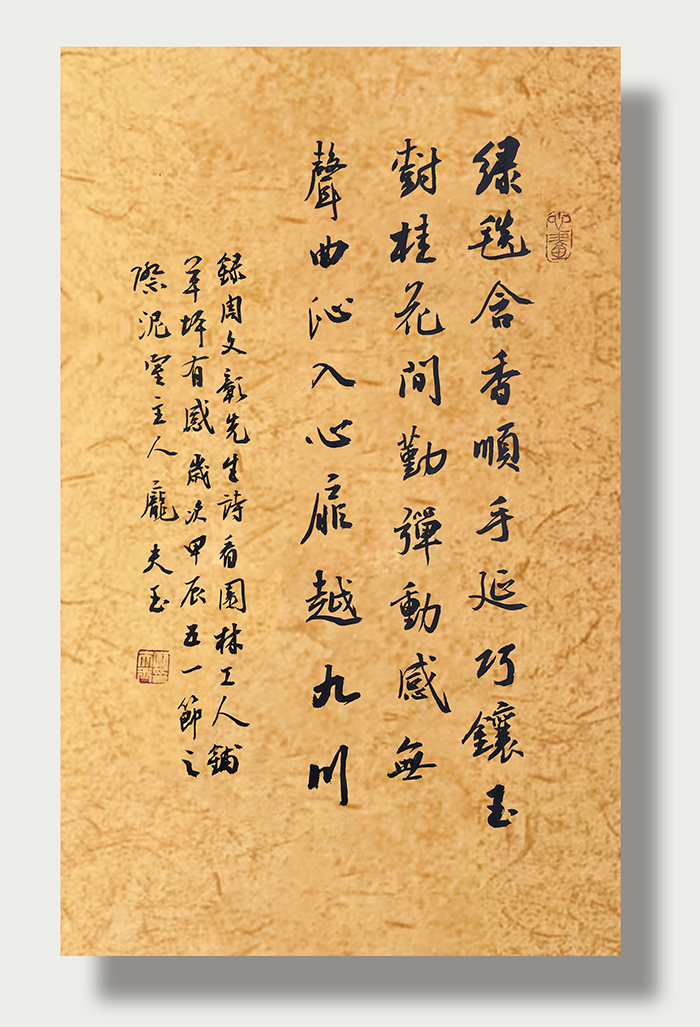 心畫
绿毯含香順手延巧鑲玉
樹桂花间勤彈動感無
聲曲沁入心扉越九川
録周文彰先生詩看園林工人鋪
草坪有感歲次甲辰五一節之
際泥室主人龐夫玉